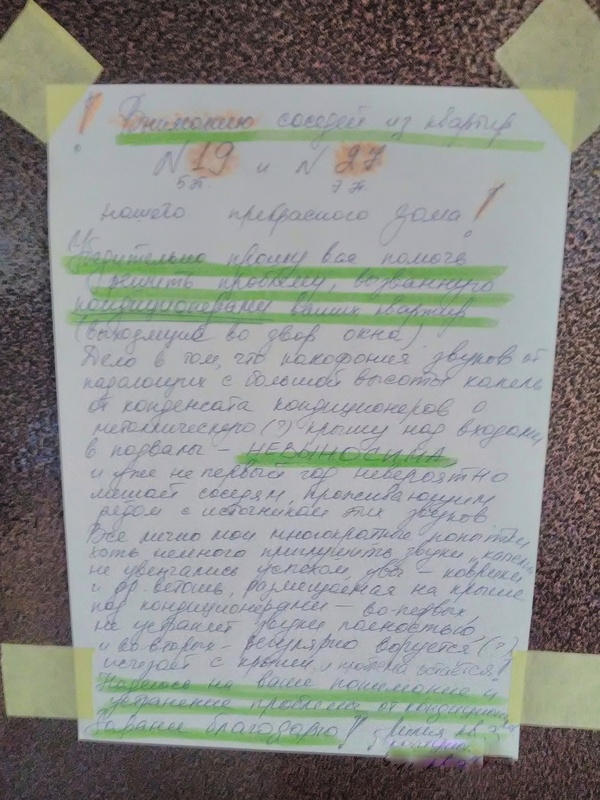 ! Вниманию соседей из квартир
N 19 и N 27
5 эт. 7 эт.
нашего прекрасного дома!
Убедительно прошу вас помочь
решить проблему, вызванную
кондиционерами ваших квартир
(выходящие во двор окна)
Дело в том, что какофония звуков от
падающих с большой высоты капель
от конденсата кондиционеров о
металлическую (?) крышу над входами
в подвалы – НЕВЫНОСИМА
и уже не первый год невероятно
мешает соседям, проживающим
рядом с источником этих звуков
Все лично мои многократные попытки
хоть немного приглушить звуки "капели"
не увенчались успехом, увы – коврики
и др. ветошь, размещаемая на крыше
под кондиционерами – во-первых
не устраняет звуки полностью,
и во-вторых – регулярно воруется (?)
исчезает с крыши, и проблема остаётся!
Надеюсь на ваше понимание и
устранение проблемы от кондиционеров
Заранее благодарю!